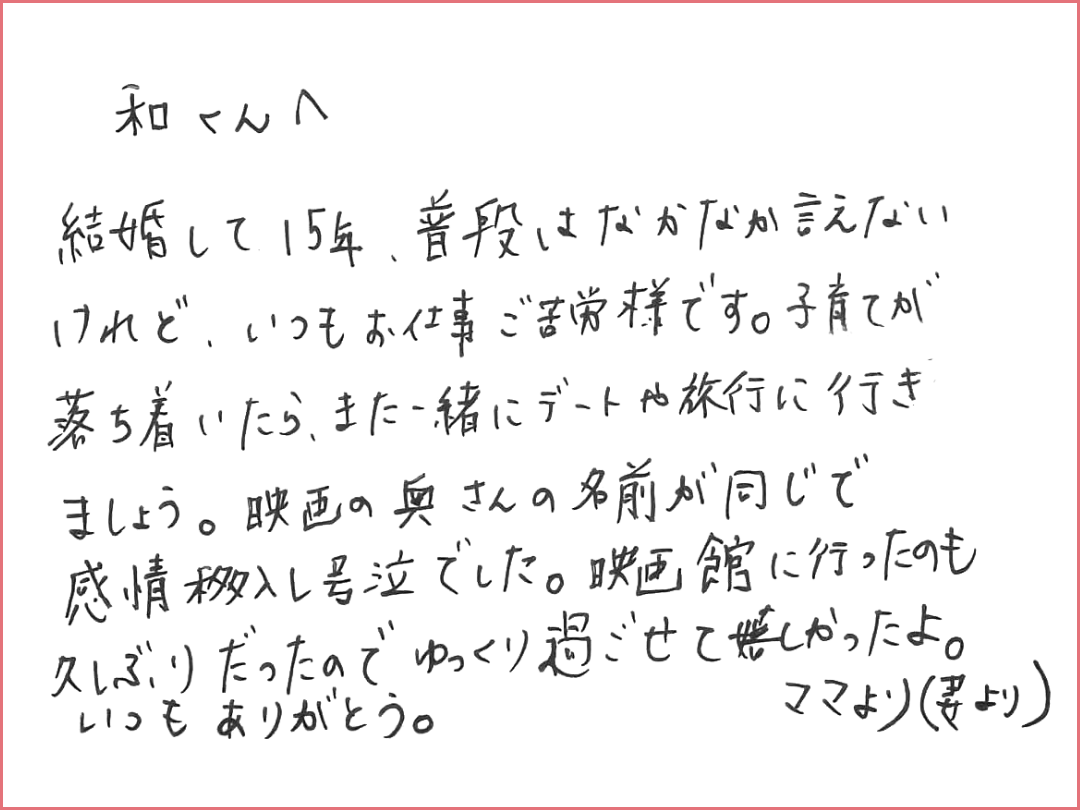 和くんへ
結婚して15年、普段はなかなか言えない
けれど、いつもお仕事ご苦労様です。子育てが
落ち着いたら、また一緒にデートや旅行に行き
ましょう。映画の奥さんの名前が同じで
感情移入し号泣でした。映画館に行ったのも
久しぶりだったのでゆっくり過ごせて嬉しかったよ。
いつもありがとう。
ママより(妻より)